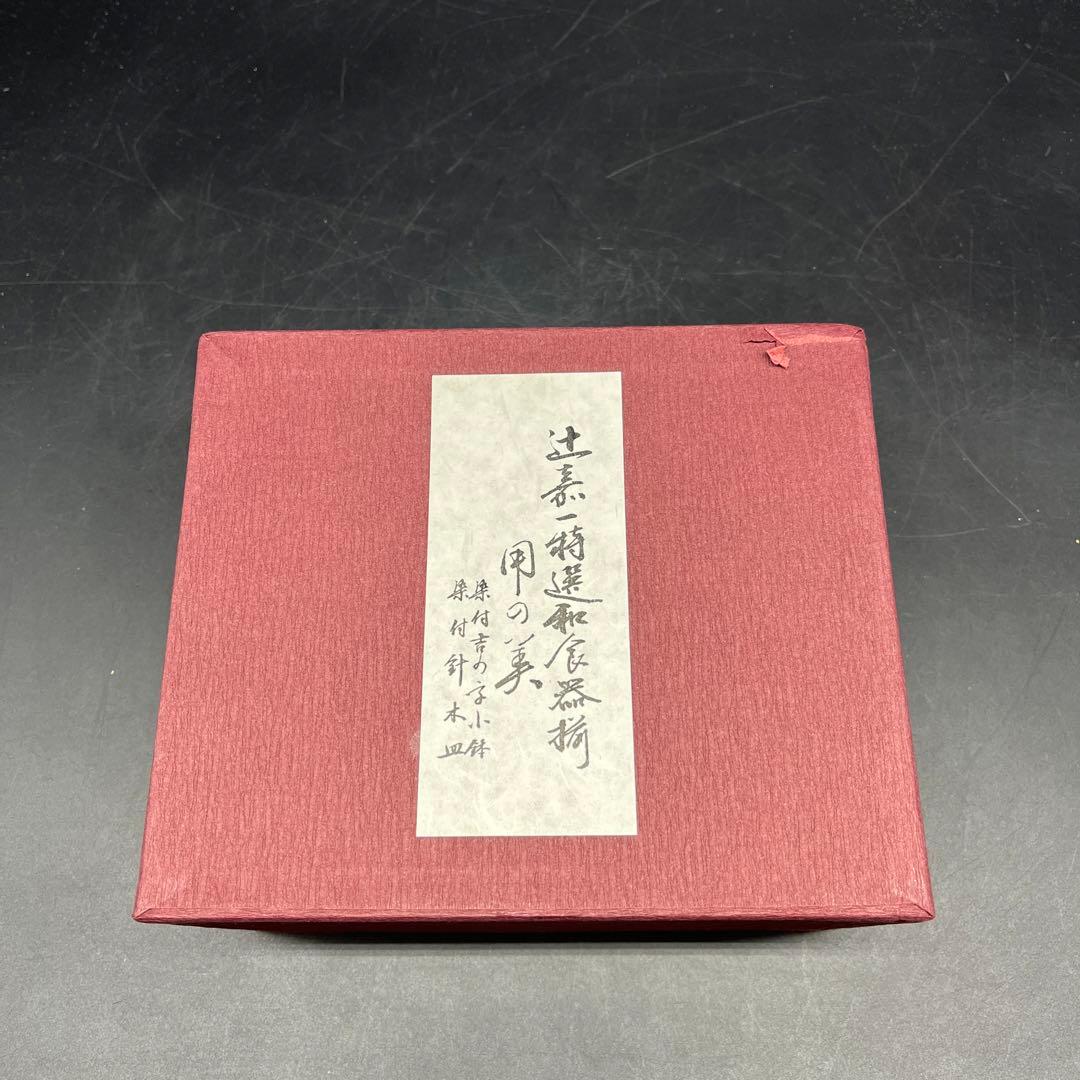 辻嘉一特選和食器揃
用の美
染付吉の字小鉢
染付針木皿